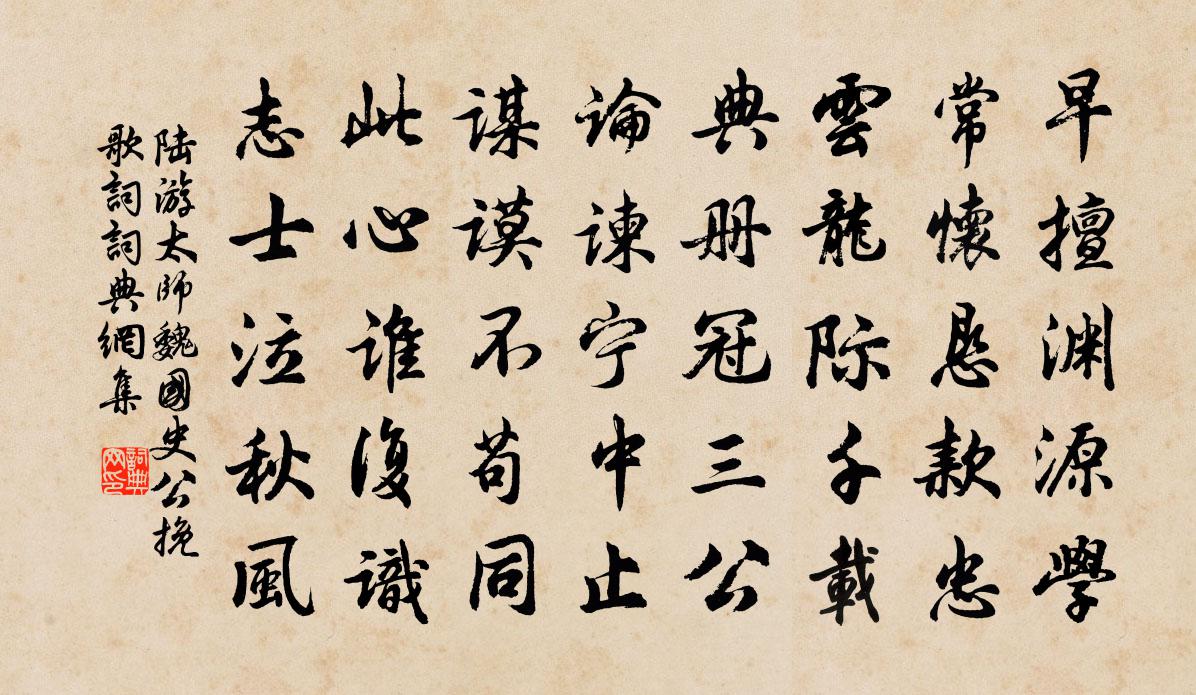 早擅渊源學
常懷恳款忠
雲龍际千載
典册冠三公
論諫宁中止
謀謨不苟同
此心谁復識
志士泣秋風
陆游太師魏國史公挽
歌詞詞典網集
詞典
网印